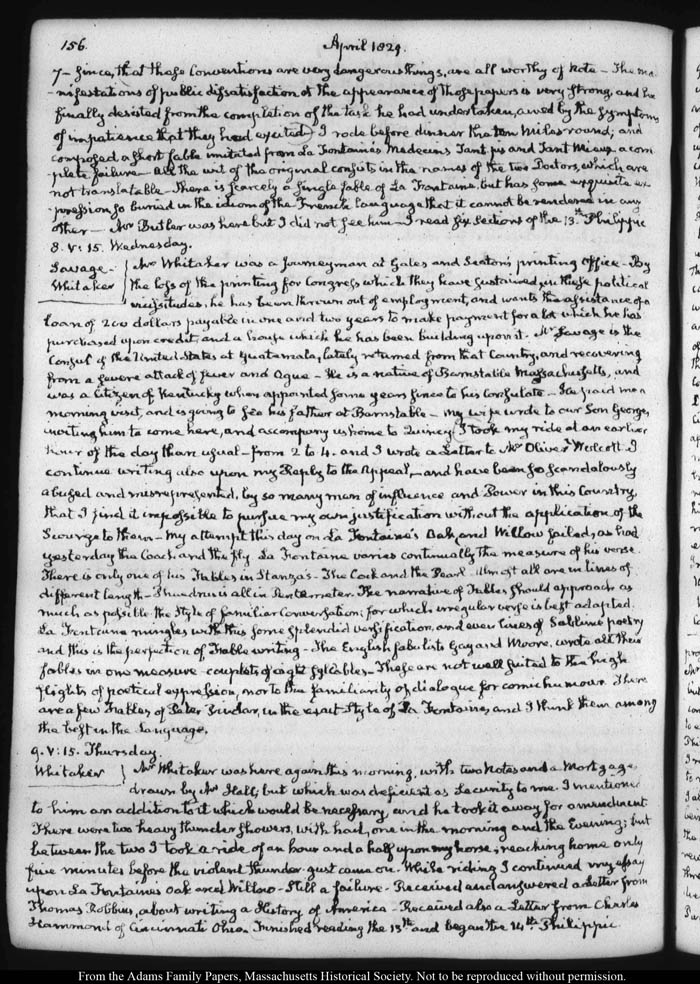 156.
April 1829.
7— since, that those Conventions are very dangerous things, are all worthy of note— The ma-
-nifestations of public dissatisfaction at the appearance of those papers is very strong, and he
finally desisted from the completion of the task he had undertaken, awed by the symptoms
of impatience that they had excited. I rode before dinner the ten miles round; and
composed a short fable imitated from La Fontaine's Medecins Tant pis and Tant Mieux a com
plete failure— All the wit of the original consists in the names of the two Doctors, which are
not translatable. There is scarcely a single fable of La Fontaine, but has some exquisite ex-
pression so buried in the idiom of the French language that it cannot be rendered in any
other— Mr Butler was here but I did not see him— I read six sections of the 13th Philippic
8. V: 15. Wednesday.
Savage— Mr Whitaker was a Journeyman at Gales and Seaton's printing office— By
Whitaker the loss of the printing for Congress which they have sustained in these political
vicissitudes, he has been thrown out of employment, and wants the assistance of a
loan of 200 dollars payable in one and two years to make payment for a lot which he has
purchased upon credit, and a house which he has been building upon it. Mr Savage is the
Consul of the United States at Guatamala, lately returned from that Country, and recovering
from a severe attack of fever and Ague— He is a native of Barnstable Massachusetts, and
was a Citizen of Kentucky when appointed some years since to his Consulate— He paid me a
morning visit, and is going to see his father at Barnstable— My wife wrote to our Son George,
inviting him to come here, and accompany us home to Quincy. I took my ride at an earlier
hour of the day than usual— from 2 to 4. and I wrote a Letter to Mr Oliver Wolcott. I
continue writing also upon my Reply to the Appeal,— and have been so scandalously
abused and misrepresented, by so many men of influence and Power in this Country,
that I find it impossible to pursue my own justification without the application of the
Scourge to them— My attempt this day on La Fontaine's Oak and Willow failed, as had
yesterday the Coach and the fly. La Fontaine varies continually the measure of his verse.
There is only one of his Fables in Stanzas— The Cock and the Pearl. Almost all are in lines of
different length— Phaedrus is all in Penta meter. The narrative of Fables should approach as
much as possible the Style of familiar Conversation; for which irregular verse is best adapted.
La Fontaine mingles with this some splendid versification, and even lines of Sublime poetry
and this is the perfection of Fable writing— The English fabulists Gay and Moore, wrote all their
fables in one measure— couplets of eight syllables— These are not well suited to the high
flights of poetical expression, nor to the familiarity of dialogue for comic humour. There
are a few Fables of Peter Pindar, in the exact Style of La Fontaine, and I think them among
the best in the Language.
9. V: 15. Thursday.
Whitaker Mr Whitaker was here again this morning, with two Notes and a Mortgage
drawn by Mr Hall, but which was deficient as Security to me. I mentioned
to him an addition to it which would be necessary and he took it away for amendment
There were two heavy thunder showers, with hail, one in the morning and the Evening; but
between the two I took a ride of an hour and a half upon my horse; reaching home only
five minutes before the violent thunder gust came on. While riding I continued my essay
upon La Fontaine's Oak and Willow— Still a failure— Received and answered a Letter from
Thomas Robbins, about writing a History of America— Received also a Letter from Charles
Hammond of Cincinnati Ohio. Finished reading the 13th and began the 14th Philippic.
From the Adams Family Papers, Massachusetts Historical Society. Not to be reproduced without permission.